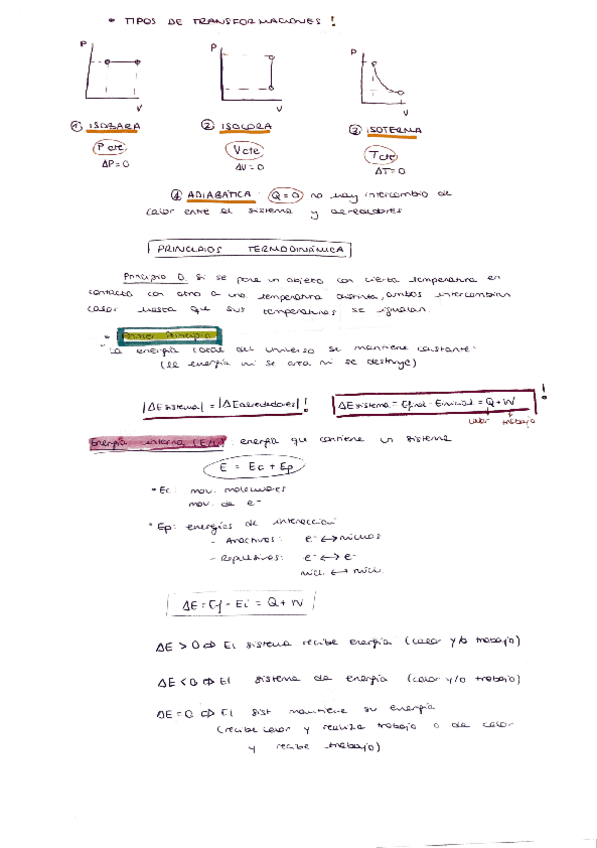 • TIPOS DE TRANSFORMACIONES !
P
V
P
V
P
V
① ISOBARA
② ISOCORA
③ ISOTERMA
P cte
V cte
T cte
ΔP=0
ΔV=0
ΔT=0
④ ADIABÁTICA: Q=0 no hay intercambio de
calor entre el sistema y alrededores
PRINCIPIOS TERMODINÁMICA
Principio 0. Si se pone un objeto con cierta temperatura en
contacto con otro a una temperatura distinta, ambos intercambian
calor hasta que sus temperaturas se igualan.
• Primer Principio
"La energía total del universo se mantiene constante"
(la energía ni se crea ni se destruye)
|ΔE sistema| = |ΔE alrededores| !
ΔE sistema = Efinal - Einicial = Q + W !
calor trabajo
Energía interna energía que contiene un sistema
E = Ec + Ep
• Ec: mov. moleculares
mov. de e⁻
• Ep: energías de interacción
- Atractivos: e⁻ ↔ núcleos
- Repulsivos: e⁻ ↔ e⁻
núcl. ↔ núcl.
ΔE = Ef - Ei = Q + W
ΔE > 0 ⇒ El sistema recibe energía (calor y/o trabajo)
ΔE < 0 ⇒ El sistema da energía (calor y/o trabajo)
ΔE = 0 ⇒ El sist mantiene su energía
(recibe calor y realiza trabajo o da calor
y recibe trabajo)